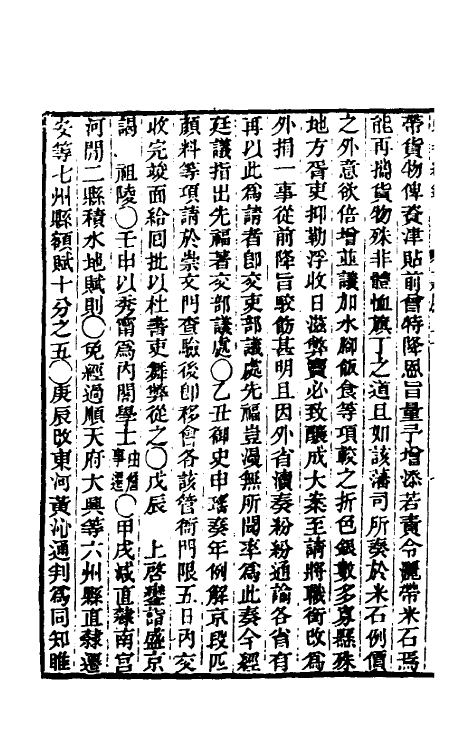 帶貨物俾資津貼前曾特降恩旨量予增添若責令灑帶米石焉
能再攜貨物殊非體恤旗丁之道且如該藩司所奏於米石例價
之外意欲倍增並議加水腳飯食等項較之折色銀數多寡縣殊
地方胥吏抑勒浮收日滋弊竇必致釀成大案至請將職銜改為
外捐一事從前降旨駮飭甚明且因外省瀆奏紛紛通諭各省有
再以此為請者卽交吏部議處先福豈漫無所聞率為此奏今經
廷議指出先福著交部議處○乙丑御史申瑤奏年例解京段匹
顏料等項請於崇文門查驗後卽移會各該管衙門限五日內交
收完竣面給回批以杜書吏舞弊從之○戊辰　上啓鑾詣盛京
謁　祖陵○壬申以秀甯為內閣學士由詹事遷○甲戌減直隸南宮
河間二縣積水地賦則○免經過順天府大興等六州縣直隸遷
安等七州縣額賦十分之五○庚辰改東河黃沁通判為同知睢